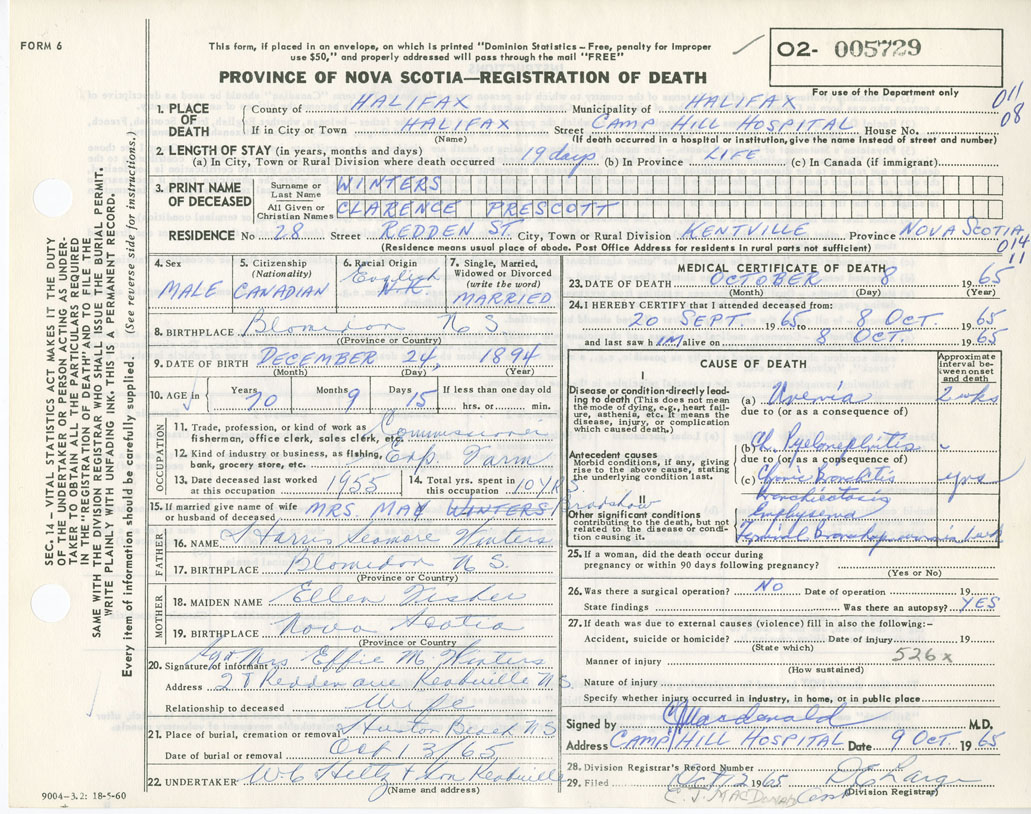 FORM 6
This form, if placed in an envelope, on which is printed "Dominion Statistics – Free, penalty for Improper
use $50," and properly addressed will pass through the mail "FREE"
O2- 005729
PROVINCE OF NOVA SCOTIA—REGISTRATION OF DEATH
For use of the Department only
011
08
1. PLACE OF DEATH County of HALIFAX Municipality of HALIFAX
If in City or Town HALIFAX Street CAMP HILL HOSPITAL House No.
(Name) (If death occurred in a hospital or institution, give the name instead of street and number)
2. LENGTH OF STAY (in years, months and days)
(a) In City, Town or Rural Division where death occurred 19 days (b) In Province LIFE (c) In Canada (if immigrant)
3. PRINT NAME OF DECEASED Surname or Last Name WINTERS
All Given or Christian Names CLARENCE PRESCOTT
RESIDENCE No 28 Street REDDEN ST. City, Town or Rural Division KENTVILLE Province NOVA SCOTIA
(Residence means usual place of abode. Post Office Address for residents in rural parts not sufficient)
014
11
4. Sex MALE
5. Citizenship (Nationality) CANADIAN
6. Racial Origin English N.K.
7. Single, Married, Widowed or Divorced (write the word) MARRIED
8. BIRTHPLACE Blomidon N S.
(Province or Country)
9. DATE OF BIRTH DECEMBER 24, 1894
(Month) (Day) (Year)
10. AGE in Years 70 Months 9 Days 15 If less than one day old
hrs. or min.
OCCUPATION
11. Trade, profession, or kind of work as
fisherman, office clerk, sales clerk, etc.
12. Kind of industry or business, as fishing,
bank, grocery store, etc. Exp. Farm
13. Date deceased last worked at this occupation 1955
14. Total yrs. spent in this occupation 10 YRS
15. If married give name of wife or husband of deceased MRS. MAY WINTERS Bradshaw
FATHER
16. NAME Harris Seamore Winters
17. BIRTHPLACE Blomidon N S.
(Province or Country)
MOTHER
18. MAIDEN NAME Ellen Fisher
19. BIRTHPLACE Nova Scotia
(Province or Country)
20. Signature of informant Mrs Effie M. Winters
Address 28 Redden ave Kentville N S
Relationship to deceased Wife
21. Place of burial, cremation or removal Huston Beach N S
Date of burial or removal Oct 13/65
22. UNDERTAKER W C Hiltz & Son Kentville
(Name and address)
MEDICAL CERTIFICATE OF DEATH
23. DATE OF DEATH OCTOBER 8 1965
(Month) (Day) (Year)
24. I HEREBY CERTIFY that I attended deceased from:
20 SEPT. 1965 to 8 OCT. 1965
and last saw h IM alive on 8 OCT. 1965
CAUSE OF DEATH
Approximate interval between onset and death
I
Disease or condition directly leading to death (This does not mean
the mode of dying, e.g., heart failure, asthenia, etc. It means the
disease, injury, or complication which caused death.)
(a) Uremia 2 wks
due to (or as a consequence of)
(b) Ch Pyelonephritis
due to (or as a consequence of)
Antecedent causes
Morbid conditions, if any, giving rise to the above cause, stating
the underlying condition last.
(c) Chronic Bronchitis yrs
Bronchiectasis
II
Other significant conditions
contributing to the death, but not related to the disease or condition causing it.
Emphysema
Terminal Bronchopneumonia 1 wk
25. If a woman, did the death occur during
pregnancy or within 90 days following pregnancy?
(Yes or No)
26. Was there a surgical operation? NO Date of operation 19
State findings Was there an autopsy? YES
27. If death was due to external causes (violence) fill in also the following:–
Accident, suicide or homicide? Date of injury 19
(State which)
526x
Manner of injury
(How sustained)
Nature of injury
Specify whether injury occurred in industry, in home, or in public place
Signed by Macdonald M.D.
Address CAMP HILL HOSPITAL Date 9 OCT. 1965
28. Division Registrar's Record Number
29. Filed Oct 12 1965
(Division Registrar)
E. J. MACDONALD
SEC. 14 — VITAL STATISTICS ACT MAKES IT THE DUTY
OF THE UNDERTAKER OR PERSON ACTING AS UNDER-
TAKER TO OBTAIN ALL THE PARTICULARS REQUIRED
IN THE "REGISTRATION OF DEATH" AND TO FILE THE
SAME WITH THE DIVISION REGISTRAR WHO SHALL ISSUE THE BURIAL PERMIT.
WRITE PLAINLY WITH UNFADING INK. THIS IS A PERMANENT RECORD.
Every item of information should be carefully supplied. (See reverse side for instructions.)
9004–3.2: 18-5-60